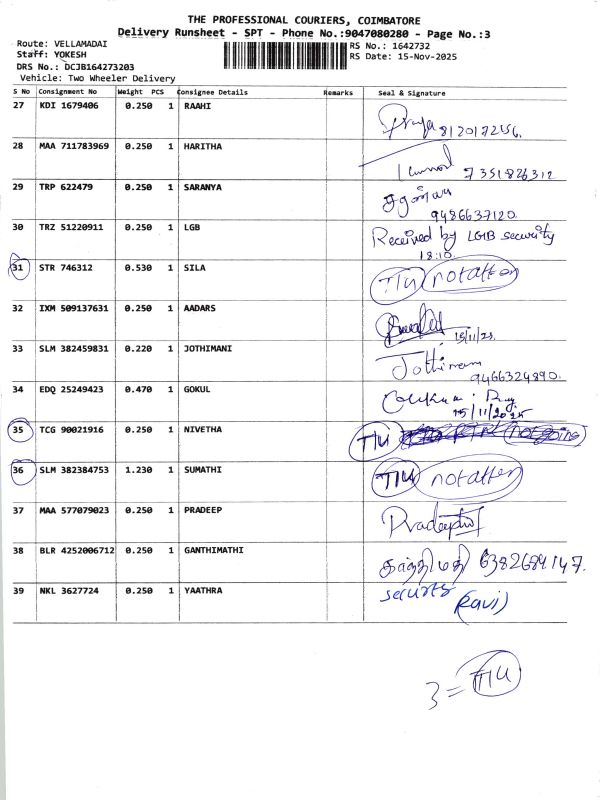 THE PROFESSIONAL COURIERS, COIMBATORE
Delivery Runsheet - SPT - Phone No.:9047080280 - Page No.:3
Route: VELLAMADAI
RS No.: 1642732
Staff: YOKESH
RS Date: 15-Nov-2025
DRS No.: DCJB164273203
Vehicle: Two Wheeler Delivery
S No Consignment No Weight PCS Consignee Details Remarks Seal & Signature
27 KDI 1679406 0.250 1 RAAHI Priya 8120172456.
28 MAA 711783969 0.250 1 HARITHA 7351826312
29 TRP 622479 0.250 1 SARANYA சரண்யா
9486637120
30 TRZ 51220911 0.250 1 LGB Received by LGB security
18:10.
31 STR 746312 0.530 1 SILA TIU not atten
32 IXM 509137631 0.250 1 AADARS 15/11/25
33 SLM 382459831 0.220 1 JOTHIMANI Jothimani
9466324890.
34 EDQ 25249423 0.470 1 GOKUL
15/11/2025
35 TCG 90021916 0.250 1 NIVETHA TIU
36 SLM 382384753 1.230 1 SUMATHI TIU not atten
37 MAA 577079023 0.250 1 PRADEEP Pradeep
38 BLR 4252006712 0.250 1 GANTHIMATHI காந்திமதி 6382689147.
39 NKL 3627724 0.250 1 YAATHRA security
(Ravi)
3 = TIU